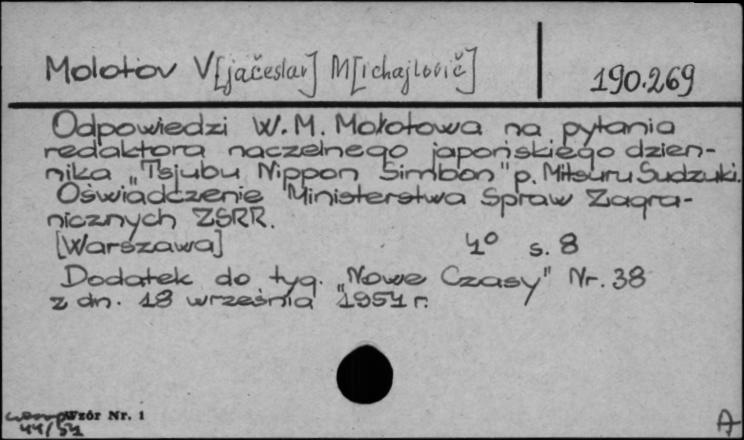 Molotov V[jačeslav] M[ichajlovič] 190.269
Odpowiedzi W. M. Mołotowa na pytania
redaktora naczelnego japońskiego dzien-
nika „Tsjubu Nippon Simbon" p. Mitsuru Sudzuki.
Oświadczenie Ministerstwa Spraw Zagra-
nicznych ZSRR.
[Warszawa] 4° s. 8
Dodatek do tyg. „Nowe Czasy" Nr. 38
z dn. 18 września 1954 r.
Wzór Nr. 1
44/54 A